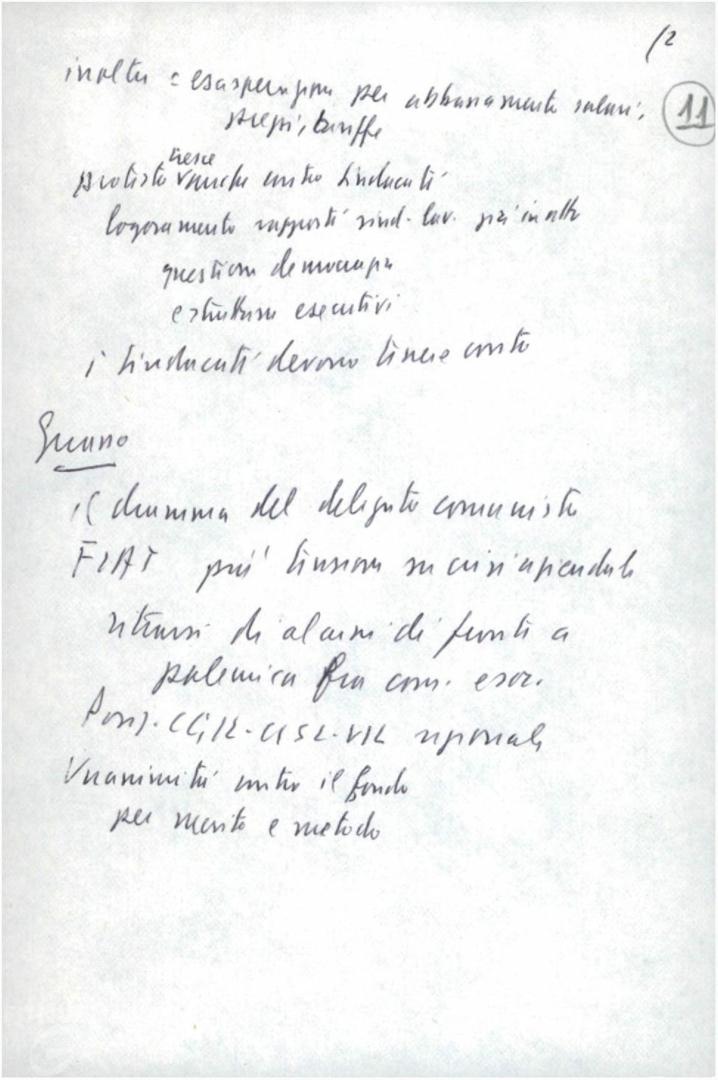 /2
11
inoltre = esasperazione per abbassamento salari,
prezzi, tariffe
protesta cresce anche contro sindacati
logoramento rapporti sind-lav. già in atto
questione democrazia
e strutture esecutivi
i sindacati devono tenere conto
il dramma del delegato comunista
FIAT più tensione su crisi aziendale
ritrarsi di alcuni di fronte a
polemica fra com.
Posiz. CGIL-CISL-UIL regionale
Unanimità contro il fondo
per merito e metodo